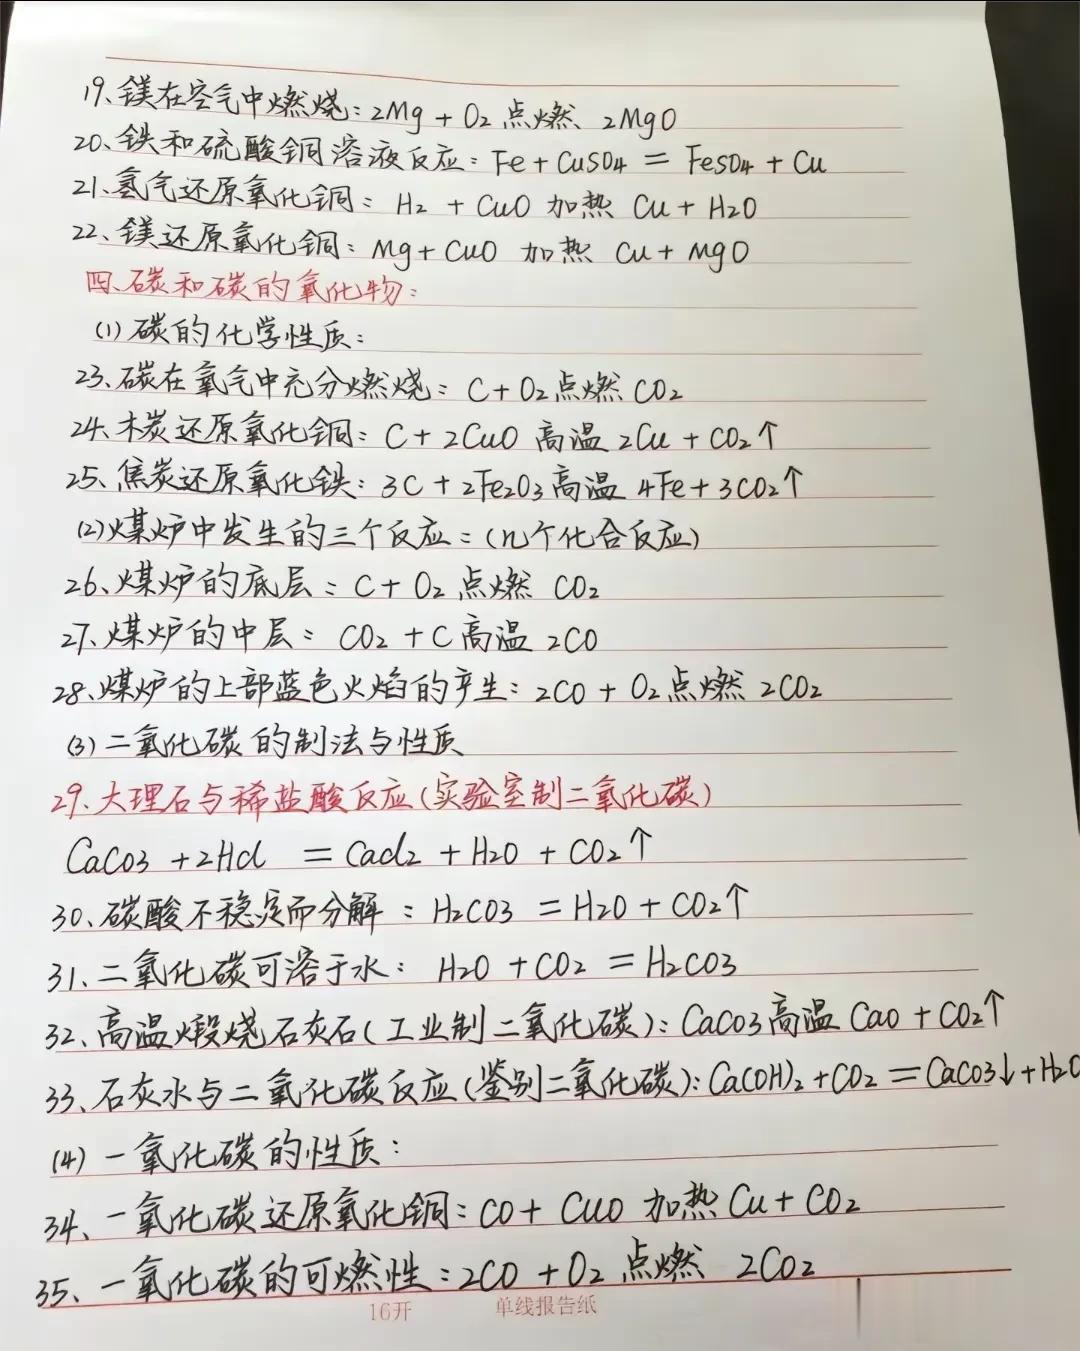 19、镁在空气中燃烧：2Mg + O2 点燃 2MgO
20、铁和硫酸铜溶液反应：Fe + CuSO4 = FeSO4 + Cu
21、氢气还原氧化铜：H2 + CuO 加热 Cu + H2O
22、镁还原氧化铜：Mg + CuO 加热 Cu + MgO
四、碳和碳的氧化物：
(1) 碳的化学性质：
23、碳在氧气中充分燃烧：C + O2 点燃 CO2
24、木炭还原氧化铜：C + 2CuO 高温 2Cu + CO2↑
25、焦炭还原氧化铁：3C + 2Fe2O3 高温 4Fe + 3CO2↑
(2) 煤炉中发生的三个反应：(几个化合反应)
26、煤炉的底层：C + O2 点燃 CO2
27、煤炉的中层：CO2 + C 高温 2CO
28、煤炉的上部蓝色火焰的产生：2CO + O2 点燃 2CO2
(3) 二氧化碳的制法与性质
29、大理石与稀盐酸反应(实验室制二氧化碳)
CaCO3 + 2HCl = CaCl2 + H2O + CO2↑
30、碳酸不稳定而分解：H2CO3 = H2O + CO2↑
31、二氧化碳可溶于水：H2O + CO2 = H2CO3
32、高温煅烧石灰石(工业制二氧化碳)：CaCO3 高温 CaO + CO2↑
33、石灰水与二氧化碳反应(鉴别二氧化碳)：Ca(OH)2 + CO2 = CaCO3↓ + H2O
(4) 一氧化碳的性质：
34、一氧化碳还原氧化铜：CO + CuO 加热 Cu + CO2
35、一氧化碳的可燃性：2CO + O2 点燃 2CO2
16开 单线报告纸